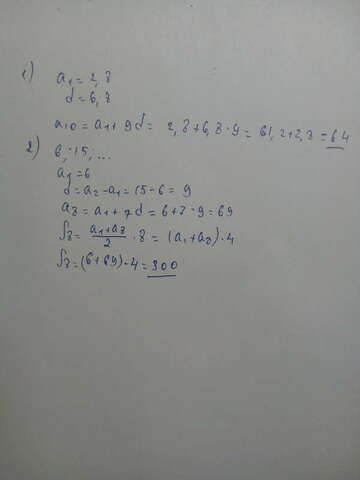 1)
a₁ = 2,8
d = 6,8
a₁₀ = a₁ + 9d = 2,8 + 6,8 · 9 = 61,2 + 2,8 = 64
2) 6; 15; ...
a₁ = 6
d = a₂ - a₁ = 15 - 6 = 9
a₈ = a₁ + 7d = 6 + 7 · 9 = 69
S₈ = (a₁ + a₈)/2 · 8 = (a₁ + a₈) · 4
S₈ = (6 + 69) · 4 = 300